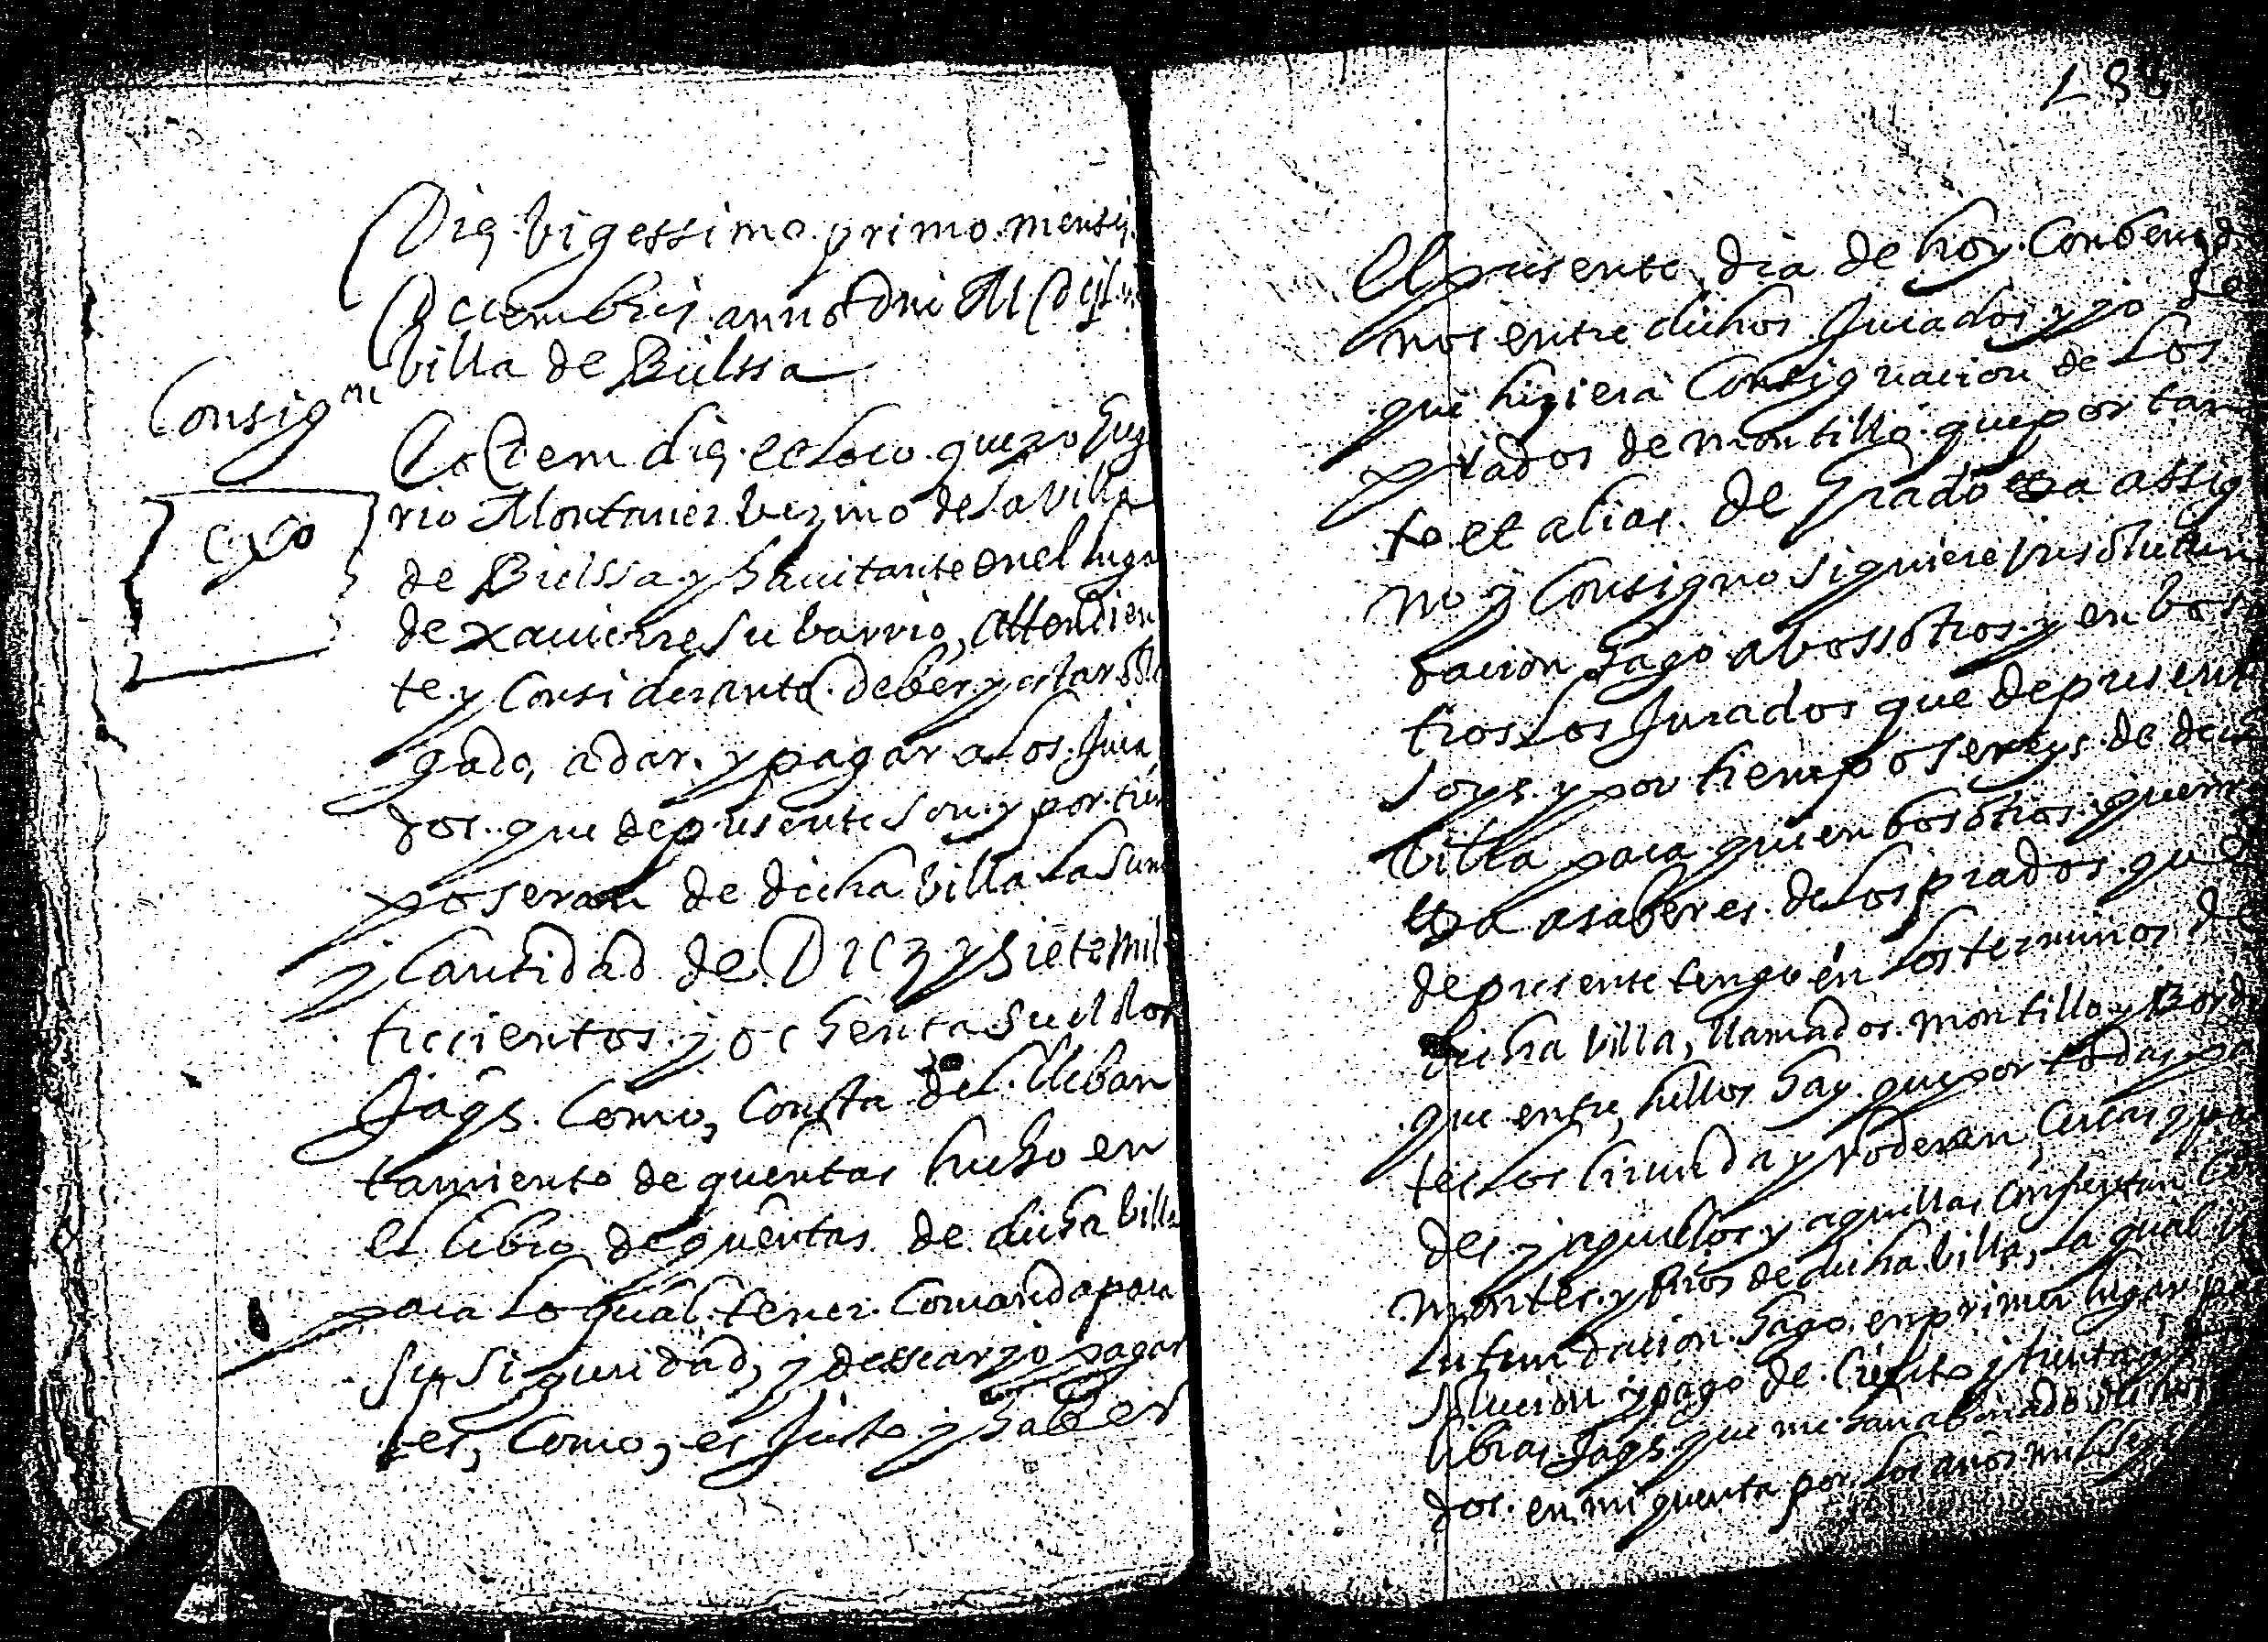 Die bigessimo primo mensis
Deciembris anno Dni M
billa de Bielssa
Consigni
Eo Dem die et Loco que yo
rio Montaner bezino de La billa
de Bielssa y havitante en el luga
de xauierre su barrio, Attendien
te y Considerante deber y estar obli
gado, a dar y pagar a Los Jura
dos que de presente son y por tiem
po seran de dicha billa La Sum
y Cantidad de Diez y siete mil
trecientos y ochenta sueldos
Jaqs. Como, Consta del lleban
tamiento de quentas hecho en
el libro de quentas de dicha billa
para Lo qual tener Comanda para
su siguridad, y descargo pagar
les, Como, es Justo y haber
188
El presente dia de hoy Conbeni
nos entre dichos Jurados y yo de
que hiziera Consignacion de Los
prados de montillo que por tan
to et alias de Grado assig
no y Consigno siquiere
dacion hago a bossotros y en boso
tros Los Jurados que de present
soys y por tiempo sereys de
billa para quien bosotros
a saber es de los prados que
de presente tengo en los terminos de
dicha billa, llamados montillo y
que entre hellos hay que por todas par
tes Los Circunda y rodean, Cercas
des y aquellos y aquellas Confrentan Con
montes y de dicha billa, La qual
hago en primer lugar
solucion y pago de Ciento y trenta
libras Jaqs que me han abonado
dos en mi quenta por los años mil